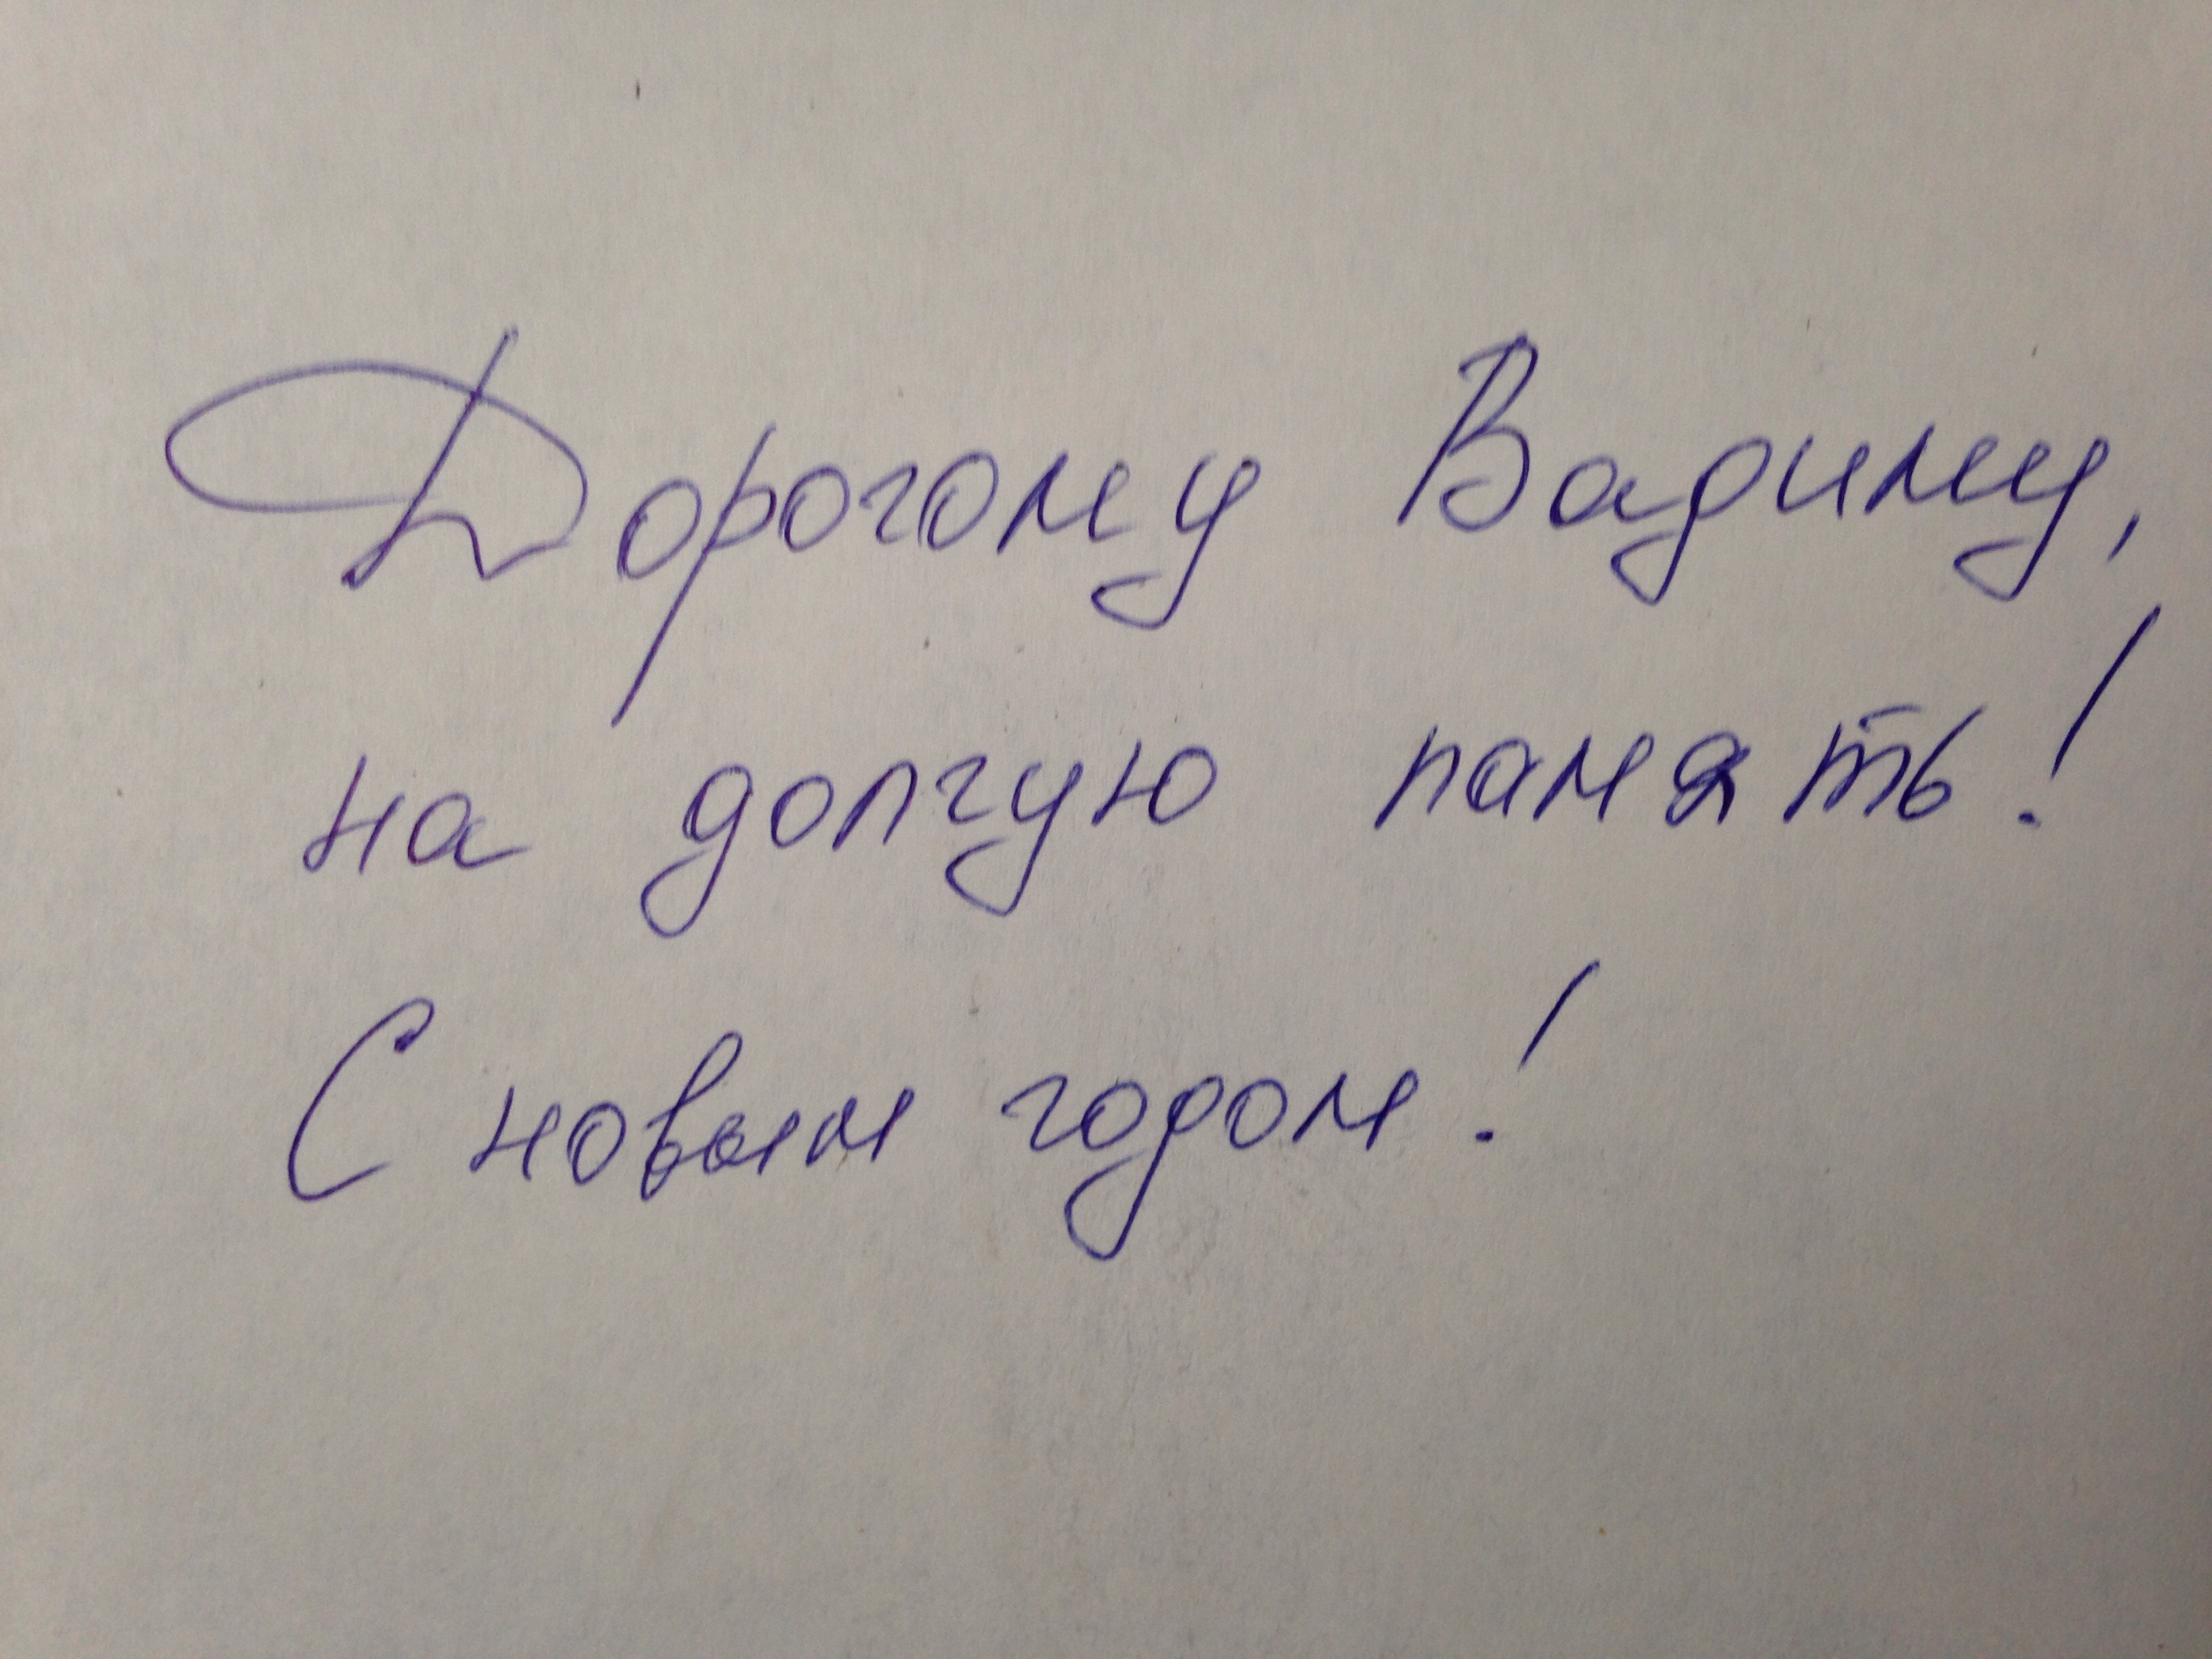 Дорогому Вадиму,
на долгую память!
С новым годом!